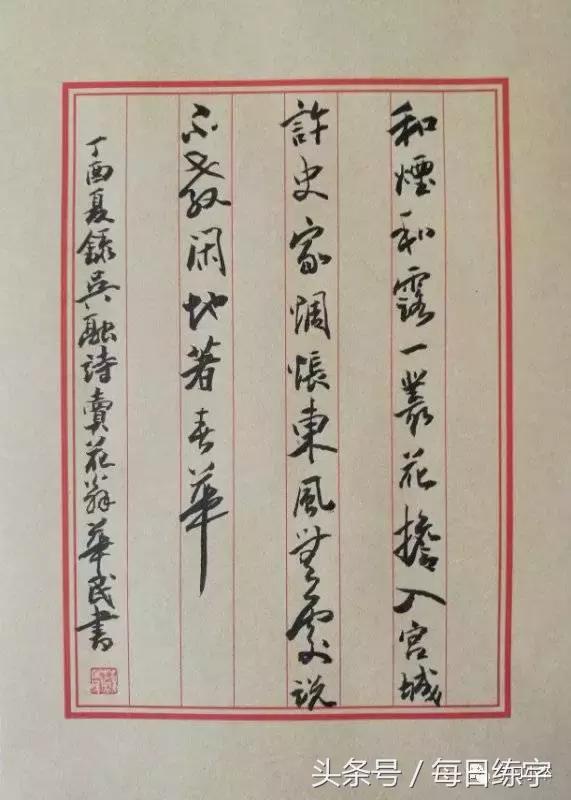 和煙和露一叢花擔入宮城
許史家惆悵東風無處說
不教閑地著春華
丁酉夏錄吳融詩賣花翁華民書
头条号／每日练字